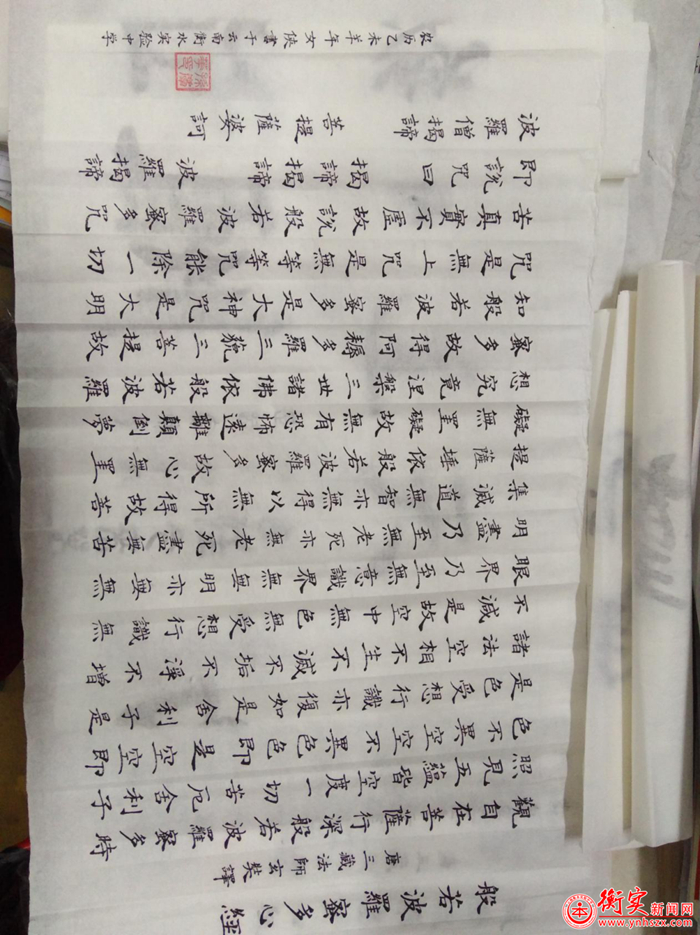 般若波羅蜜多心經
唐三藏法師玄奘譯
觀自在菩薩行深般若波羅蜜多時
照見五蘊皆空度一切苦厄舍利子
色不異空空不異色色即是空空即
是色受想行識亦復如是舍利子是
諸法空相不生不滅不垢不淨不增
不減是故空中無色無受想行識無
眼界乃至無意識界無無明亦無無
明盡乃至無老死亦無老死盡無苦
集滅道無智亦無得以無所得故菩
提薩埵依般若波羅蜜多故心無罣
礙無罣礙故無有恐怖遠離顛倒夢
想究竟涅槃三世諸佛依般若波羅
蜜多故得阿耨多羅三藐三菩提故
知般若波羅蜜多是大神咒是大明
咒是無上咒是無等等咒能除一切
苦真實不虛故說般若波羅蜜多咒
即說咒曰 揭諦揭諦 波羅揭諦
波羅僧揭諦 菩提薩婆訶
农历乙未羊年女侠書于云南衡水实验中学
衡实新闻网
www.ynhszx.com